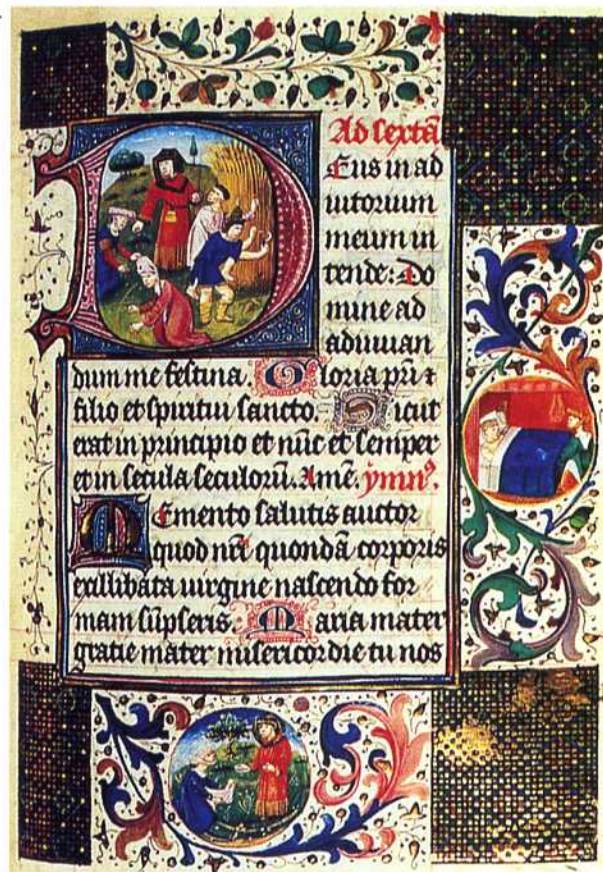 Ad sextā
Deus in ad
iutorium
meum in
tende: Do
mine ad
adiuuan
dum me festina. Gloria pr̄i ⁊
filio et spiritui sancto. Sicut
erat in principio et nūc et semper
et in secula seculorū. Amē. ymnꝰ.
Memento salutis auctor
quod nr̄i quondā corporis
exillibata uirgine nascendo for
mam sūpseris. Maria mater
gratie mater misericordie tu nos